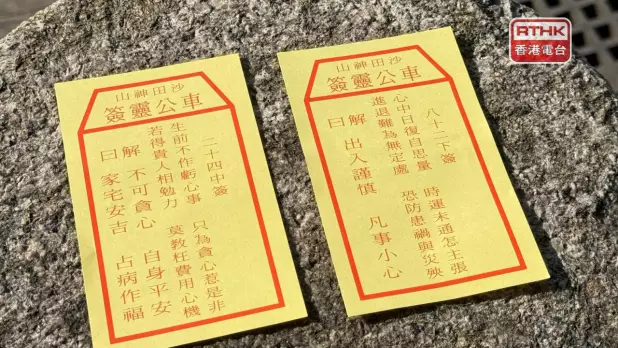 RTHK
香港電台
沙田神山
車公靈簽
二十四中簽
生前不作虧心事 只為貪心惹是非
若得貴人相勉力 莫教枉費用心機
解 不可貪心 自身平安
曰 家宅安吉 占病作福
沙田神山
車公靈簽
八十二下簽
心中日復自思量 時運未通怎主張
進退難為無定處 恐防患禍與災殃
解曰 出入謹慎 凡事小心